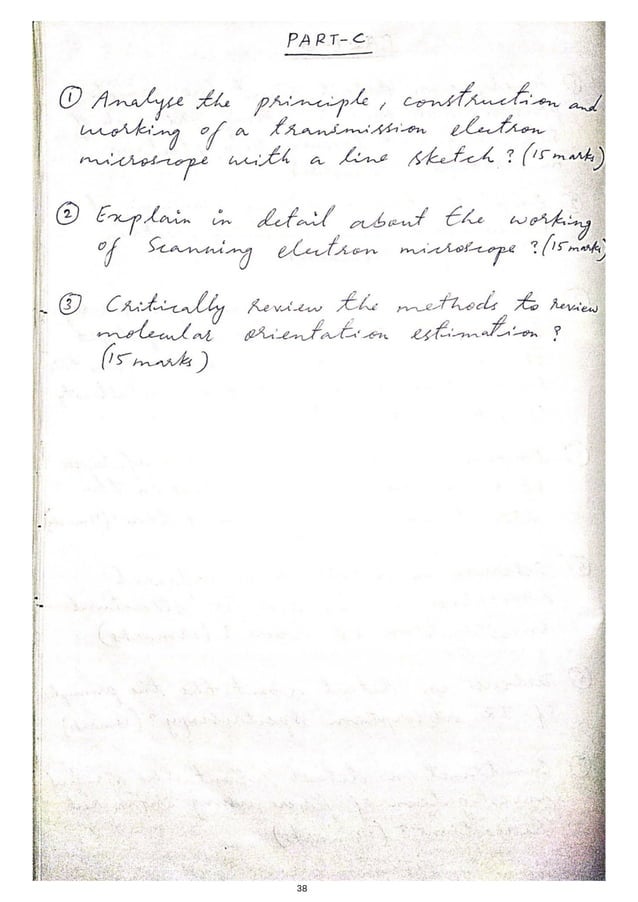 PART-C
① Analyse the principle, construction and
working of a transmission electron
microscope with a line sketch? (15 marks)
② Explain in detail about the working
of Scanning electron microscope? (15 marks)
③ Critically review the methods to review
molecular orientation estimation?
(15 marks)
38